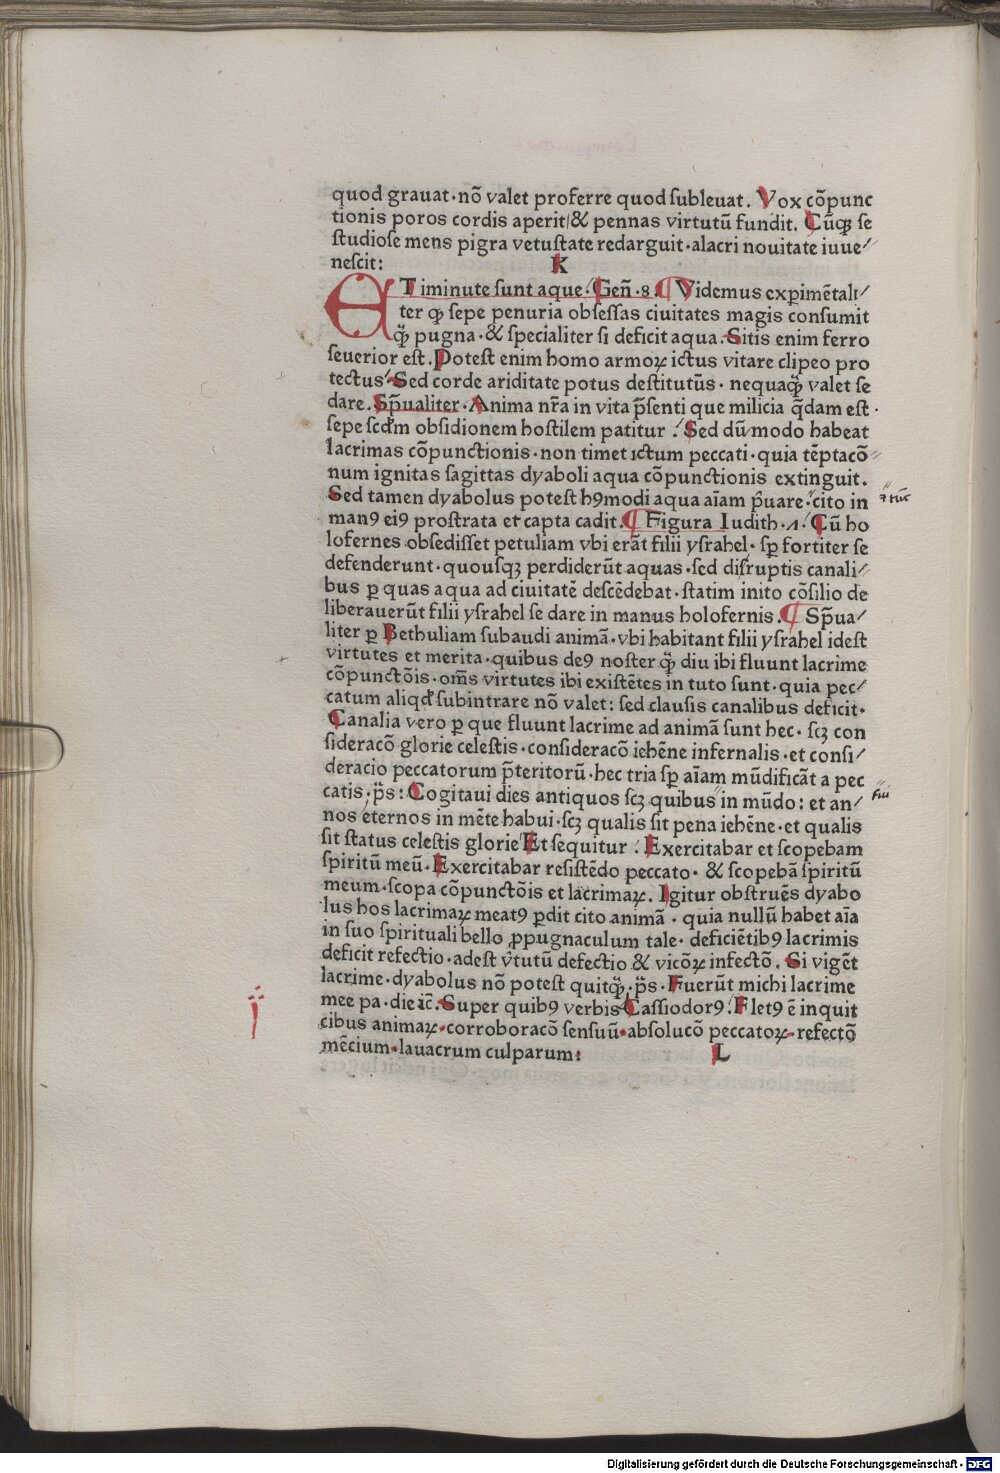 quod grauat·nō valet proferre quod ſubleuat. Vox cōpunc
tionis poros cordis aperit/& pennas virtutū fundit. Cūqꝫ ſe
ſtudioſe mens pigra vetuſtate redarguit·alacri nouitate iuue⸗
neſcit:
K
ET iminute ſunt aque·Geñ·8. ¶ Videmus exꝑimētali⸗
ter ꝙ ſepe penuria obſeſſas ciuitates magis conſumit
q̃ pugna·& ſpecialiter ſi deficit aqua. Sitis enim ferro
ſeuerior eſt. Poteſt enim homo armoꝝ ictus vitare clipeo pro
tectus· Sed corde ariditate potus deſtitutūs· nequaq̃ valet ſe
dare. Sp̄ualiter·Anima nr̄a in vita p̄ſenti que milicia q̄dam eſt·
ſepe ſcd̄m obſidionem hoſtilem patitur: Sed dū modo habeat
lacrimas cōpunctionis·non timet ictum peccati·quia tēptacō⸗
num ignitas ſagittas dyaboli aqua cōpunctionis extinguit.
Sed tamen dyabolus poteſt hꝯmodi aqua aīam p̄uare:cito in
manꝯ eiꝯ proſtrata et capta cadit. ¶ Figura Iudith·1· Cū ho
lofernes obſediſſet petuliam vbi erāt filii yſrahel·ſꝑ fortiter ſe
defenderunt·quouſqꝫ perdiderūt aquas·ſed diſruptis canali⸗
bus ꝑ quas aqua ad ciuitatē deſcēdebat·ſtatim inito cōſilio de
liberauerūt filii yſrahel ſe dare in manus holofernis. ¶ Sp̄ua⸗
liter ꝑ Bethuliam ſubaudi animā·vbi habitant filii yſrahel ideſt
virtutes et merita·quibus deꝯ noſter q̃ diu ibi fluunt lacrime
cōpunctōis·om̄s virtutes ibi exiſtētes in tuto ſunt·quia pec⸗
catum aliqd̄ ſubintrare nō valet: ſed clauſis canalibus deficit·
Canalia vero ꝑ que fluunt lacrime ad animā ſunt hec·ſcꝫ con
ſideracō glorie celeſtis·conſideracō iehēne infernalis·et conſi⸗
deracio peccatorum p̄teritorū·hec tria ſꝑ aīam mūdificāt a pec
catis·p̄s: Cogitaui dies antiquos ſcꝫ quibus in mūdo: et an⸗
nos eternos in mēte habui·ſcꝫ qualis ſit pena iehēne·et qualis
ſit ſtatus celeſtis glorie Et ſequitur: Exercitabar et ſcopebam
ſpiritū meū·Exercitabar reſiſtēdo peccato·& ſcopebā ſpiritū
meum·ſcopa cōpunctōis et lacrimaꝝ. Igitur obſtruēs dyabo
lus hos lacrimaꝝ meatꝯ ꝑdit cito animā·quia nullū habet aīa
in ſuo ſpirituali bello ꝓpugnaculum tale·deficiētibꝯ lacrimis
deficit refectio·adeſt v̄tutū defectio & vicōꝝ infectō. Si vigēt
lacrime·dyabolus nō poteſt quitq̃·p̄s·Fuerūt michi lacrime
mee pa·die ⁊c̄. Super quibꝯ verbis Caſſiodorꝯ: Fletꝯ ē inquit
cibus animaꝝ·corroboracō ſenſuū·abſolucō peccatoꝝ·refectō
mēcium·lauacrum culparum:
L
Digitalisierung gefördert durch die Deutsche Forschungsgemeinschaft · DFG